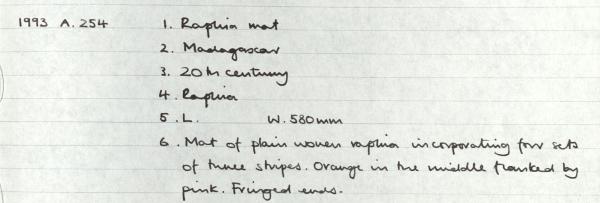 1993 A.254 1. Raphia mat
2. Madagascar
3. 20th century
4. Raphia
5. L. W. 580mm
6. Mat of plain woven raphia incorporating four sets
of three stripes. Orange in the middle flanked by
pink. Fringed ends.